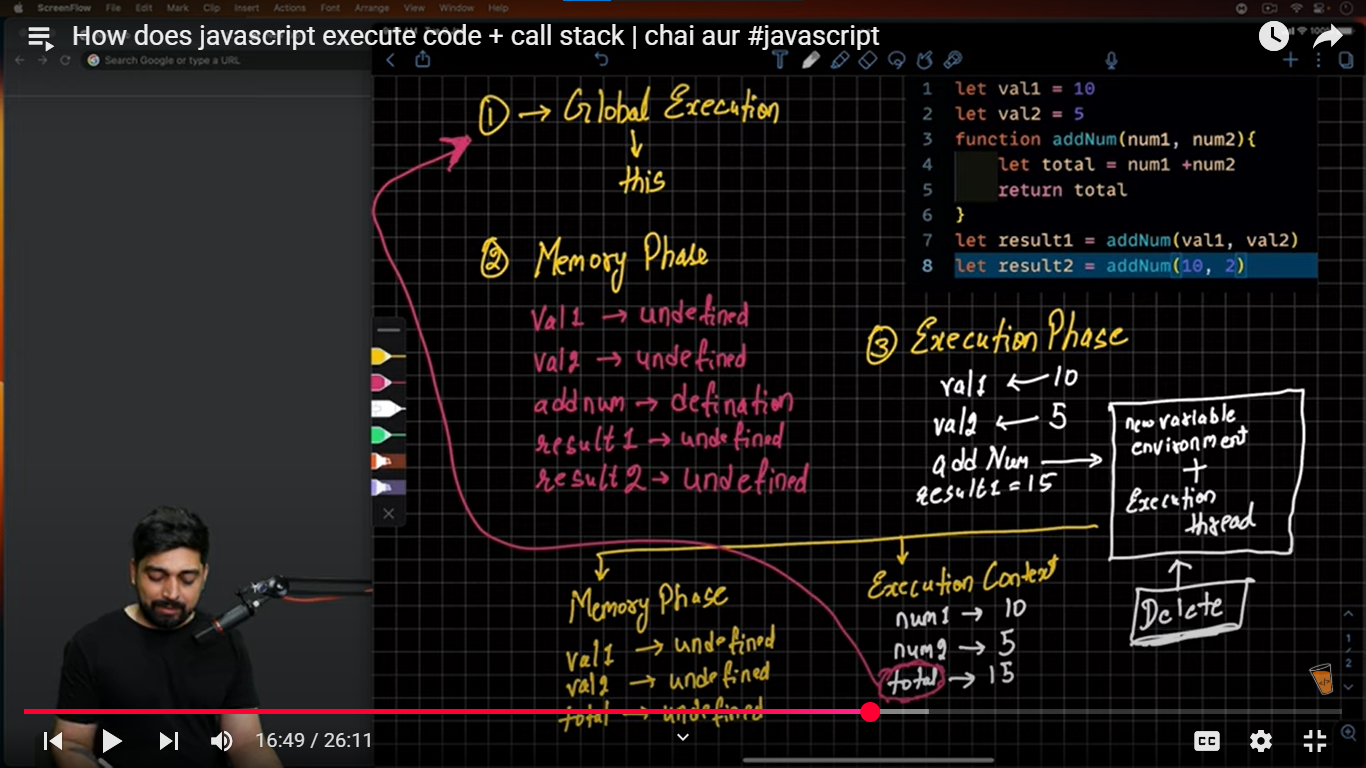 ScreenFlow File Edit Mark Clip Insert Actions Font Arrange View Window Help
How does javascript execute code + call stack | chai aur #javascript
Search Google or type a URL
① → Global Execution
↓
this
② Memory Phase
Val1 → undefined
val2 → undefined
addnum → defination
result1 → undefined
result2 → undefined
1 let val1 = 10
2 let val2 = 5
3 function addNum(num1, num2){
4 let total = num1 +num2
5 return total
6 }
7 let result1 = addNum(val1, val2)
8 let result2 = addNum(10, 2)
③ Execution Phase
val1 ← 10
val2 ← 5
add Num →
result1 = 15
new variable
environment
+
Execution
thread
Delete
Memory Phase
val1 → undefined
val2 → undefined
total → undefined
Execution Context
num1 → 10
num2 → 5
total → 15
1
2
16:49 / 26:11
CC